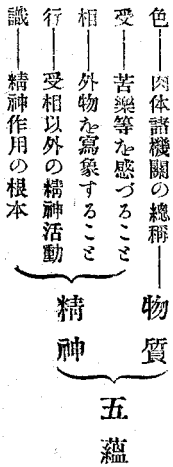 色——肉体諸機關の總稱——物質
受——苦樂等を感づること
相——外物を寫象すること
行——受相以外の精神活動
識——精神作用の根本
精神
五蘊